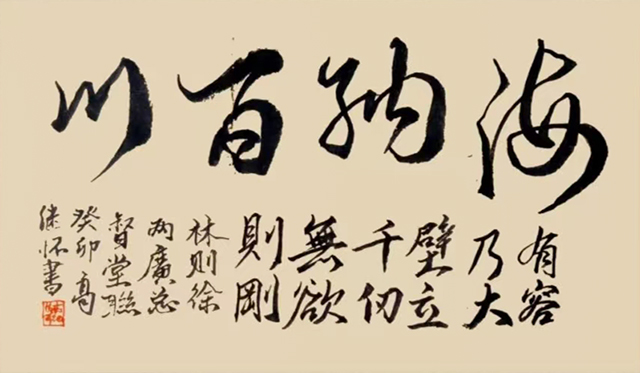 海納百川
有容
乃大
壁立
千仞
無欲
則剛
林则徐
两廣总
督堂聯
癸卯高
继怀書